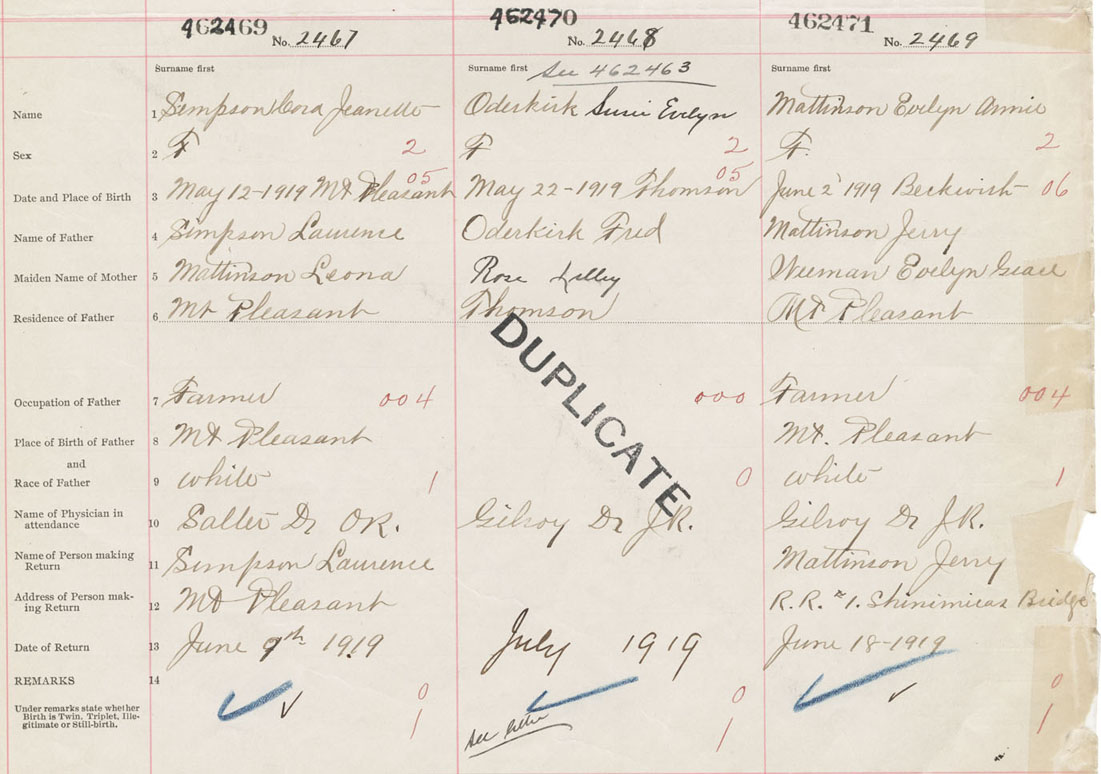 462469 462470 462471
No. 2467 No. 2468 No. 2469
Surname first Surname first See 462463 Surname first
Name 1 Simpson Cora Jeanette Oderkirk Susie Evelyn Mattinson Evelyn Annie
Sex 2 F 2 F 2 F. 2
05 05
Date and Place of Birth 3 May 12-1919 Mt Pleasant May 22-1919 Thomson June 2 1919 Beckwith 06
Name of Father 4 Simpson Laurence Oderkirk Fred Mattinson Jerry
Maiden Name of Mother 5 Mattinson Leona Rose Lilley Weeman Evelyn Grace
Residence of Father 6 Mt Pleasant Thomson Mt Pleasant
DUPLICATE
Occupation of Father 7 Farmer 004 000 Farmer 004
Place of Birth of Father 8 Mt Pleasant Mt. Pleasant
and
Race of Father 9 white 1 0 white 1
Name of Physician in
attendance 10 Salter Dr OR. Gilroy Dr J.R. Gilroy Dr J.R.
Name of Person making
Return 11 Simpson Laurence Mattinson Jerry
Address of Person mak-
ing Return 12 Mt Pleasant R.R. #1. Shinimicas Bridge
Date of Return 13 June 9th 1919 July 1919 June 18-1919
REMARKS 14
0 0 0
Under remarks state whether
Birth is Twin, Triplet, Ille-
gitimate or Still-birth.
1 See 1 1